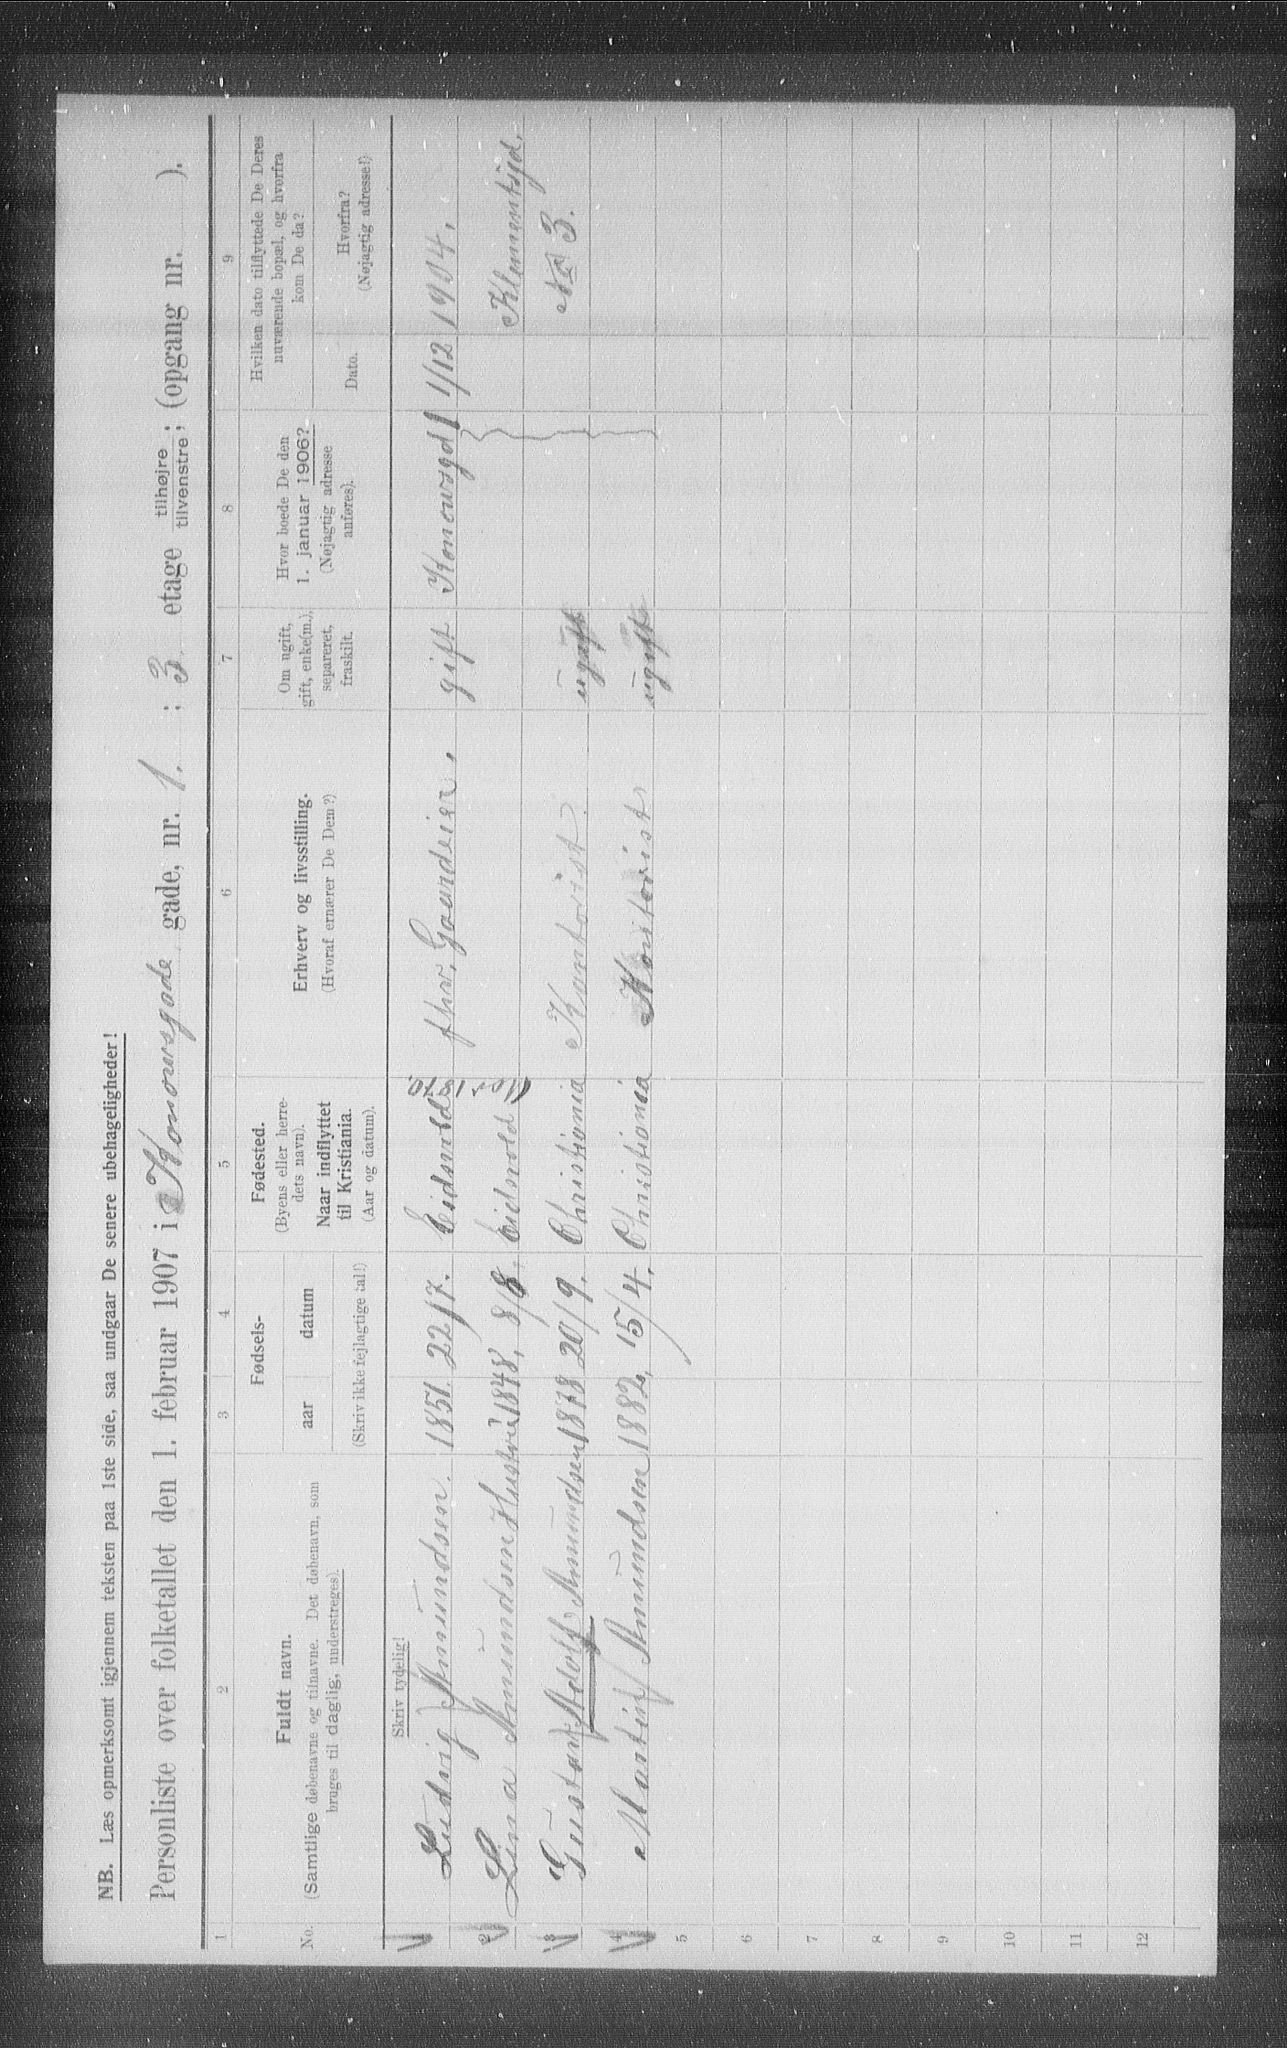 NB. Læs opmerksomt igjennem teksten paa 1ste side, saa undgaar De senere ubehageligheder!
Personliste over folketallet den 1. februar 1907 i Konowsgade gade, nr. 1. : 3 etage tilhøjre tilvenstre; (opgang nr. ).
1 2 3 4 5 6 7 8 9
No.
Fuldt navn.
(Samtlige døbenavne og tilnavne. Det døbenavn, som
bruges til daglig, understreges).
Fødsels-
aar datum
(Skriv ikke fejlagtige tal!)
Fødested.
(Byens eller herre-
dets navn).
Naar indflyttet
til Kristiania.
(Aar og datum).
Erhverv og livsstilling.
(Hvoraf ernærer De Dem?)
Om ugift,
gift, enke(m.),
separeret,
fraskilt.
Hvor boede De den
1. januar 1906?
(Nøjagtig adresse
anføres).
Hvilken dato tilflyttede De Deres
nuværende bopæl, og hvorfra
kom De da?
Dato.
Hvorfra?
(Nøjagtig adresse!)
Skriv tydelig!
1 Ludvig Amundsen. 1851. 22/7. Eidsvold 1870. fhv. Gaardeier. gift Konowsgd 1 1/12 1904.
2 Lina Amundsen Hustru 1848, 8/8. Eidsvold Klementsgd,
3 Gustav Adolf Amundsen 1878 20/9. Christiania Kontorist. ugift No 3.
4 Martin Amundsen 1882, 15/4. Christiania Kontorist ugift
5
6
7
8
9
10
11
12